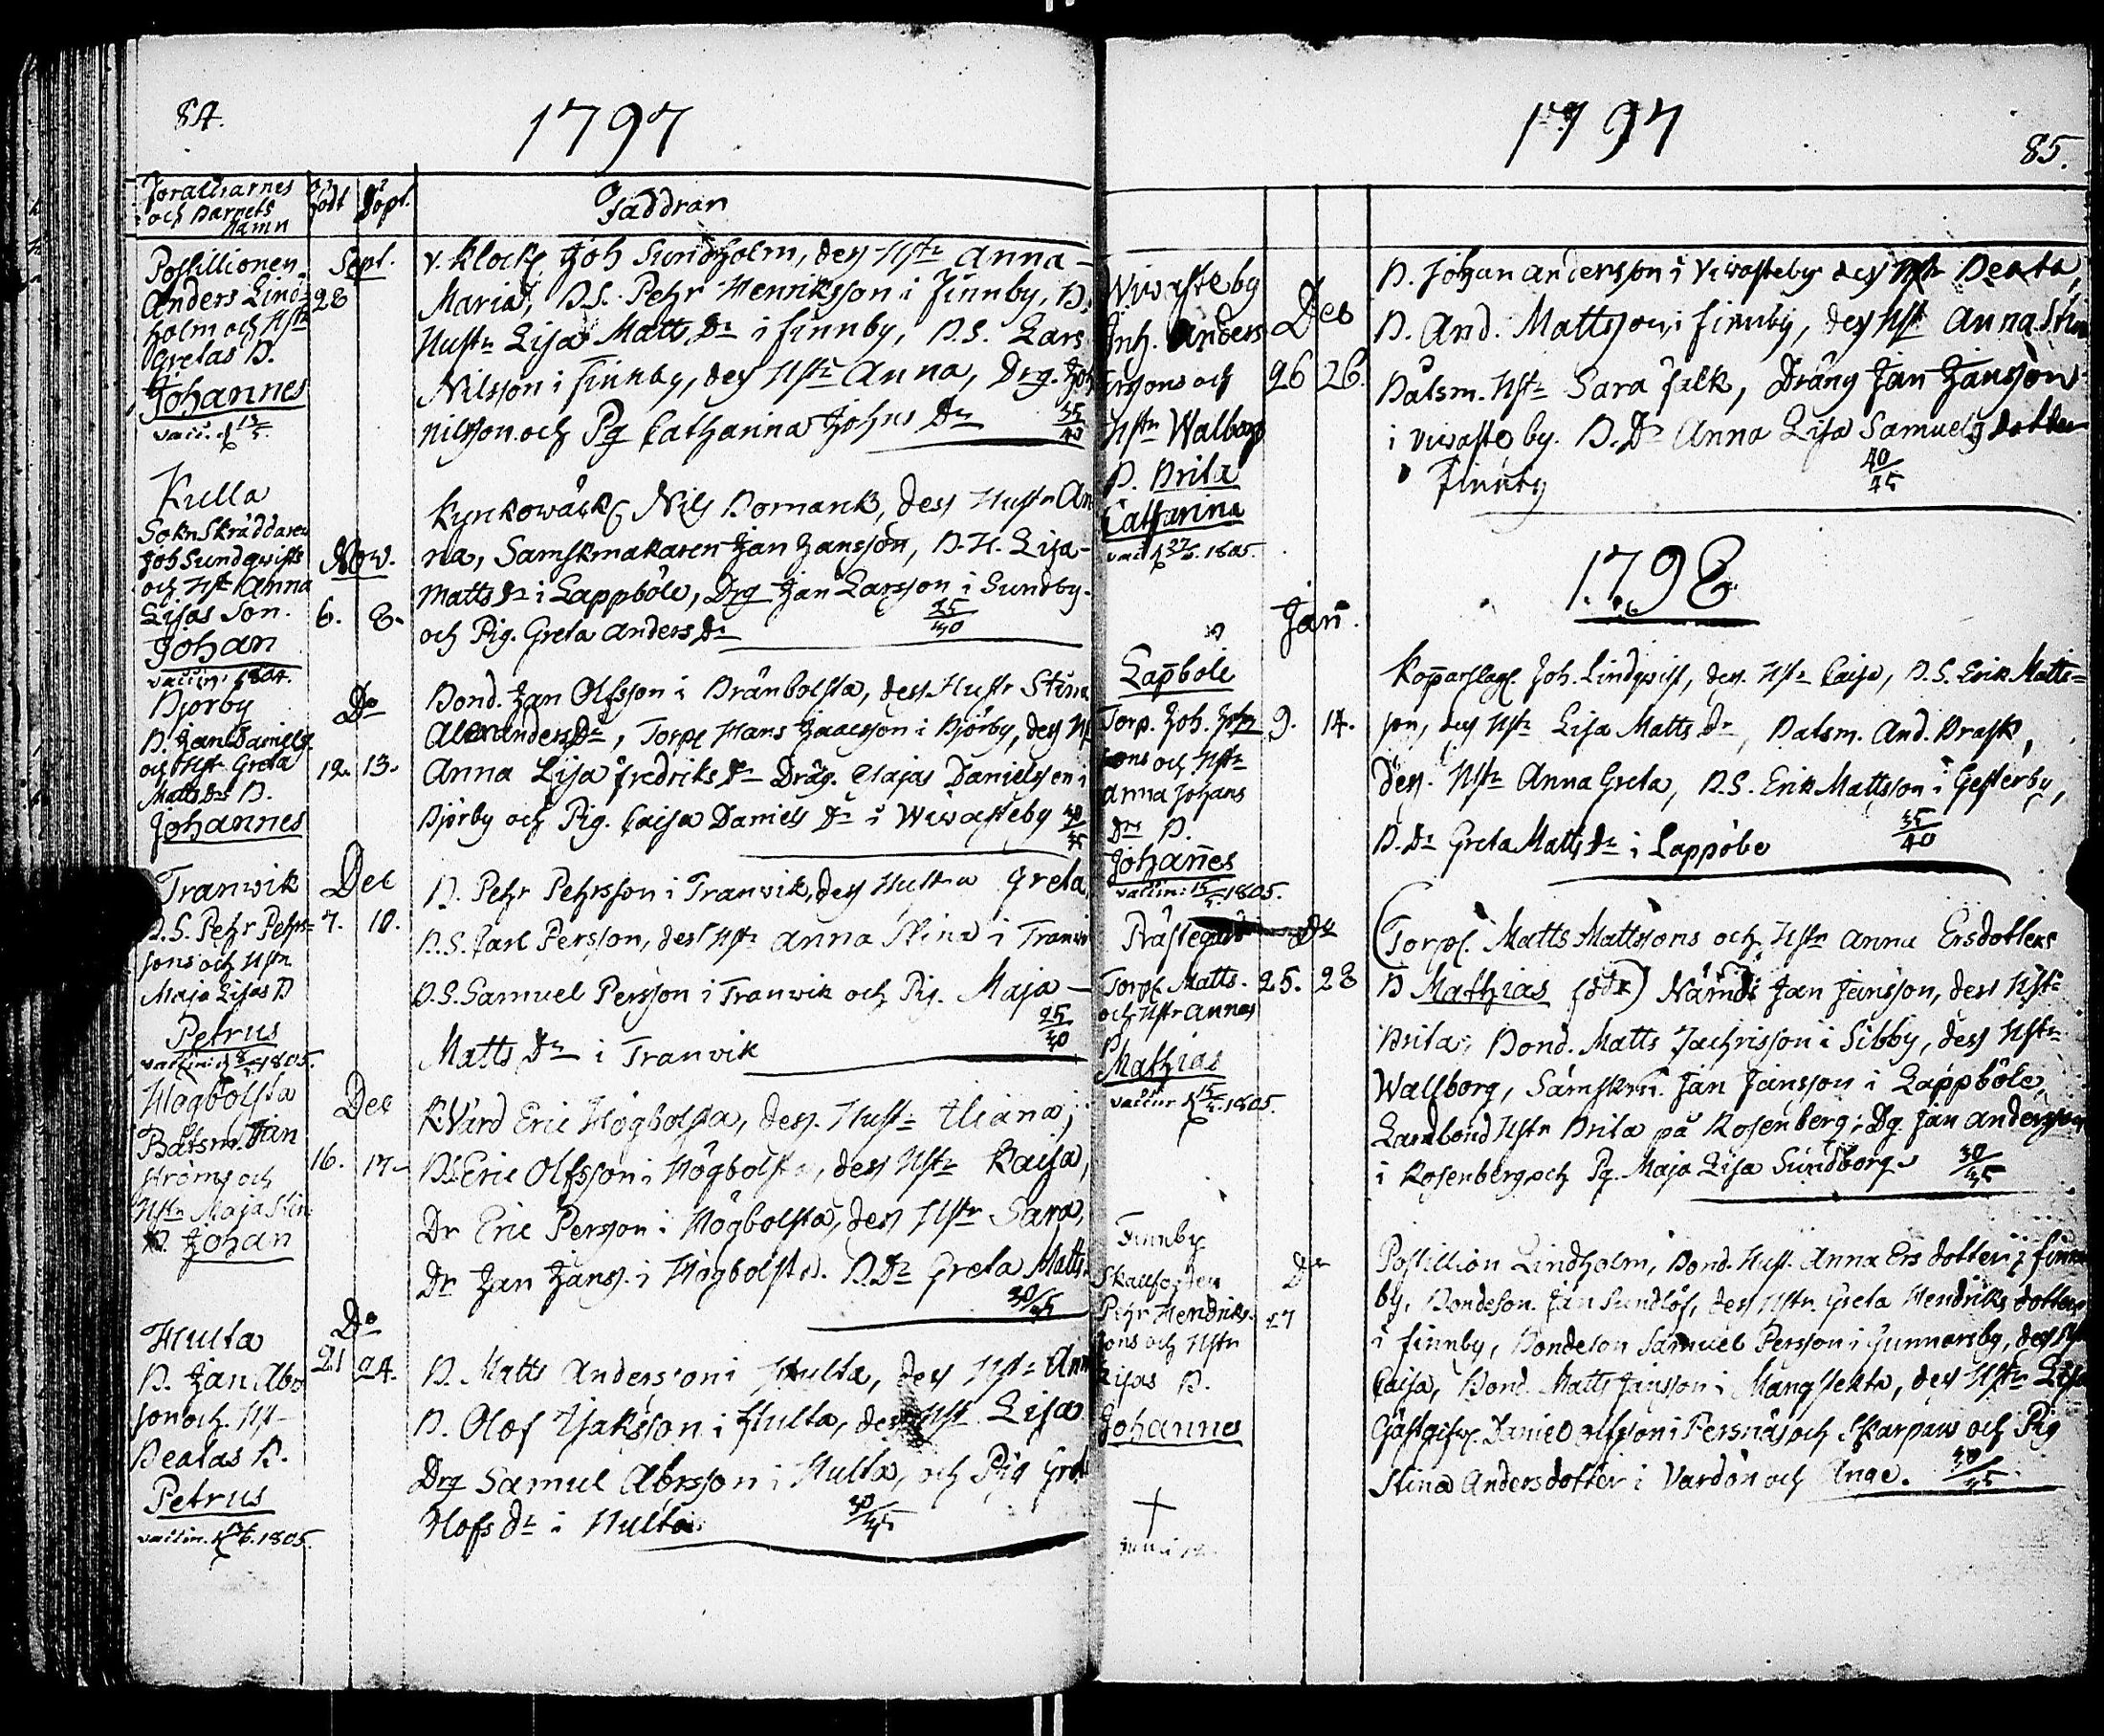 84.
1797
Föräldrarnes
och Barnets
Namn
födt
döpt.
Faddran
Postillionen
Anders Lind=
holm och Hstr
Gretas B.
Johannes
vacc. d 13/5.
Sept.
28
v. Klock. Joh Sundholm, dess Hstr Anna-
Maria, B.S. Pehr Henriksson i Finnby, B.
Hustr Lisa Matts Dr i finnby, B.S. Lars
Nilsson i finnby, dess Hstr Anna, Drg. Joh
Nilsson och Pg Catharina Johns Dr 35/40
Kulla
SoknSkräddaren
Joh Sundqwists
och Hst Anna
Lisas Son.
Johan
vaccin. 1804.
Nov.
6. 8.
Kyrkowäk. Nils Bomank, dess Hustr An
na, Sämskmakaren Jan Jansson, B.H. Lisa-
Matts Dr i Lappböle, Drg Jan Larsson i Sundby.
och Pig. Greta Anders Dr 25/30
Björby
B. Jan Daniels.
och Hstr Greta
Matts Drs B.
Johannes
Do
12. 13.
Bond. Jan Olfsson i Bränbolsta, dess Hustr Stina
Alexanders Dr, Torp. Hans Isacsson i Björby, dess Hst
Anna Lisa fredriks Dr Dräg. Elajas Danielsson i
Björby och Pig. Caisa Daniels Dr i Wiwasteby 30/35
Tranwik
B.S. Pehr Pehrs=
sons och Hstr
Maja Lisas B
Petrus
vaccin. d 8/5 1805.
Dec
7. 10.
B. Pehr Pehrsson i Tranvik, dess Hustru Greta,
B.S. Carl Persson, dess Hstr Anna Stina i Tranwi
B.S. Samuel Persson i Tranwik och Pig. Maja-
Matts Dr i Tranvik 25/30
Högbolsta
Båtsm. Jan
Ströms och
Hstr Maja Stin
B. Johan
Dec
16. 17.
K.Värd Eric Högbolsta, dess. Hust= Eliana;
B.S Eric Olfsson i Högbolsta, dess Hstr Kaisa,
Dr Eric Persson i Högbolsta, dess Hstr Sara,
Dr Jan Janss. i Högbolsta. B.Dr Greta Matts. 30/35
Hulta
B. Jan Abr
son och. Hst
Beatas B.
Petrus
vaccin. d /6. 1805.
Do
21 24.
B. Matts Andersson i Hulta, dess Hstr Ann
B. Olof Isaksson i Hulta, dess Hstr Lisa
Drg Samuel Abrsson i Hulta, och Pig Gret
Olofs Dr i Hulta. 30/35
1797
85.
Wiwasteby
Inh. Anders
Ersons och
Hstr Walborg
B. Brita
Catharina
vacc. d 27/5. 1805.
Dec
26 26.
B. Johan Andersson i Viwasteby dess Hstr Beata,
B. And. Mattsson i finnby, dess Hst Anna Stin
Båtsm. Hstr Sara Falk, Dräng Jan Jansson
i Viwasteby. B. Dr Anna Lisa Samuels dotter
i Finnby 40/45
1798
Lapböle
Torp. Joh. Joh
sons och Hstr
Anna Johans
Drs B.
Johannes
vaccin: 15/5 1805.
Jan.
9. 14.
Koparslag. Joh. Lindqvist, dess Hstr Caisa, B.S. Erik Matts=
son, dess Hstr Lisa Matts Dr, Båtsm. And. Brask,
dess. Hstr Anna Greta, B.S. Erik Mattsson i Gesterby,
B. Dr Greta Matts Dr i Lappöle 35/40
Prästegård
Torp. Matts.
och Hstr Annas
Mathias
vaccin d 15/5. 1805.
Do
25. 28
(Torp. Matts Mattssons och Hstr Anna Ersdotters
B Mathias) Nämd. Jan Jansson, dess Hstr
Brita, Bond. Matts Zachrisson i Sibby, dess Hstr
Wallborg, Sämskm. Jan Jansson i Lappböle,
Landbond Hstr Brita på Rosenberg, Dg. Jan Andersson
i Rosenberg, och Pg. Maja Lisa Sundborg. 30/35
Finnby
Skallfogden
Pehr Hendriks.
sons och Hstr
Lisas B.
Johannes
†
Do
27
Postillion Lindholm, Bond. Hust. Anna Ersdotter i finn
by, Bondeson. Jan Sundlöf, dess Hstr. Greta Hendriks dotter
i finnby, Bondeson Samuel Persson i Gunnarsby, dess Hst
Caisa, Bond. Matts Jansson i Mangstekta, dess Hstr Lisa
Gästgifv. Daniel Olfsson i Persnäs och Skarpans och Pig
Stina Andersdotter i Vardön och Ånge. 30/35